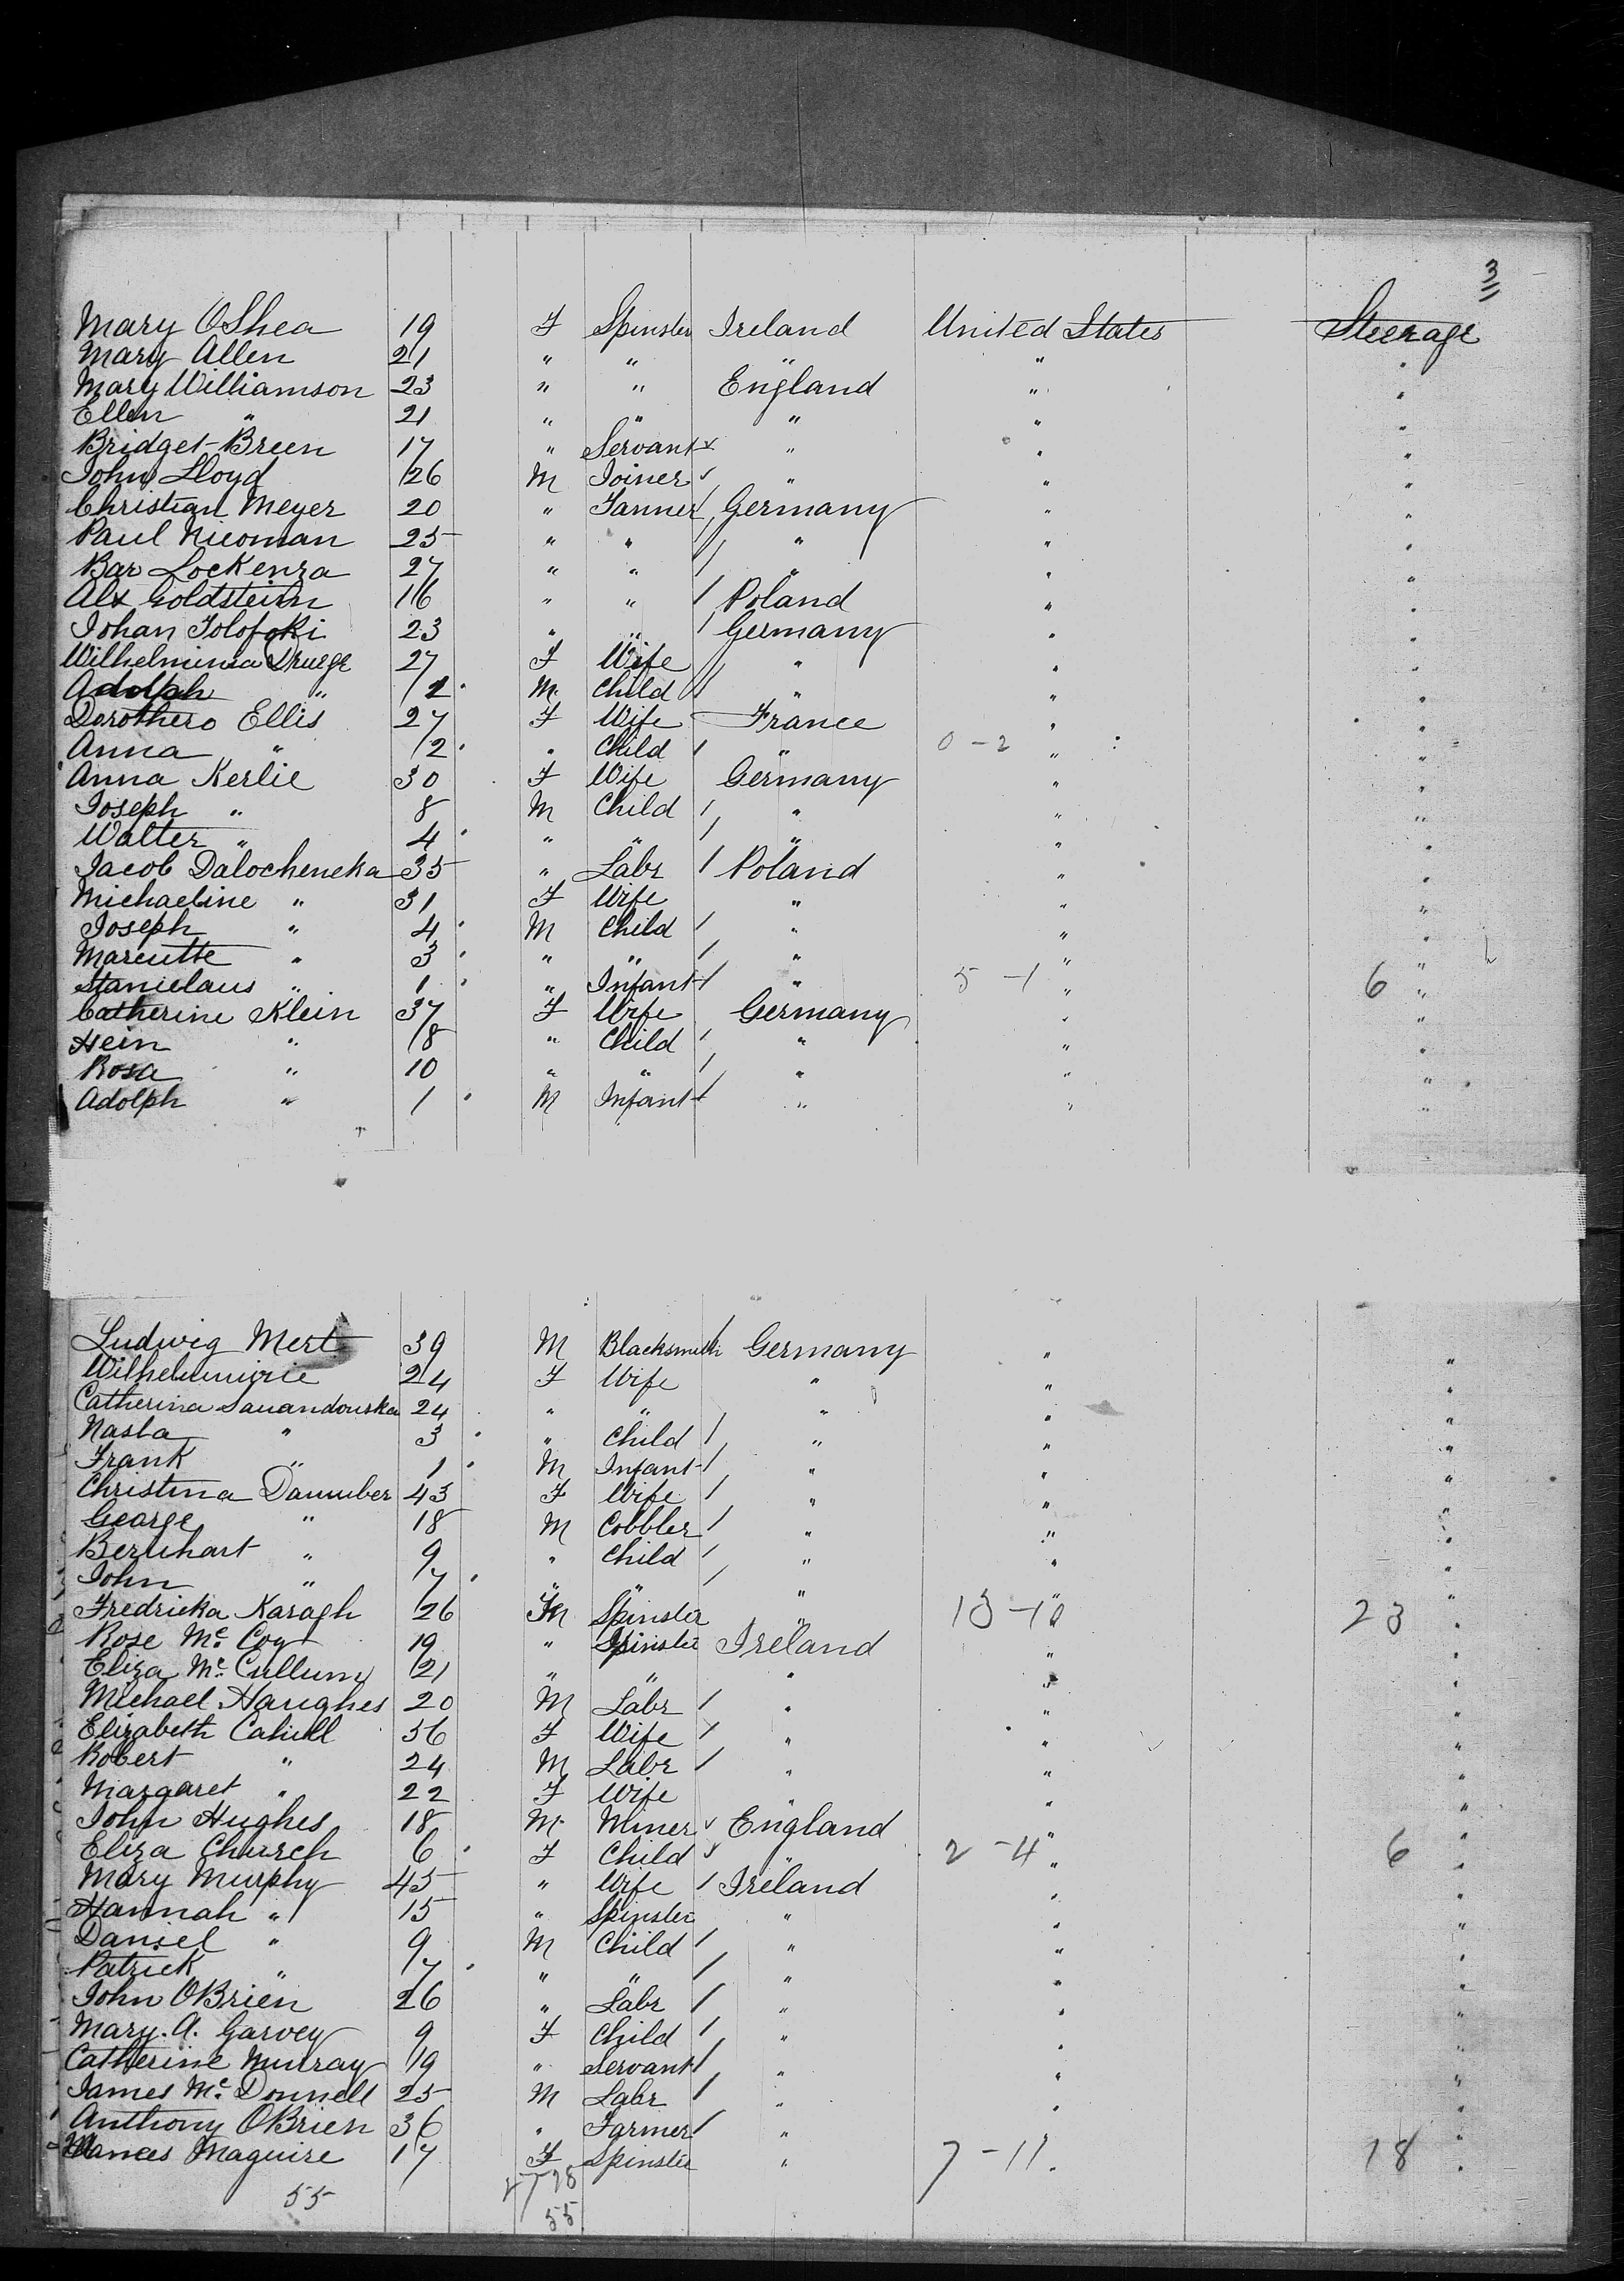 3
Mary OShea 19 F Spinster Ireland United States Steerage
Mary Allen 21 " " " " "
Mary Williamson 23 " " England " "
Ellen " 21 " " " " "
Bridget Breen 17 " Servant " " "
John Lloyd 26 M Joiner " " "
Christian Meyer 20 " Farmer Germany " "
Paul Nieoman 25 " " " " "
Bar Lockenza 27 " " " " "
Alx Goldstein 16 " " Poland " "
Johan 23 " " Germany " "
Wilhelmina Druege 27 F Wife " " "
Adolph " 2 M Child " " "
Dorothero Ellis 27 F Wife France " "
Anna " 2 " Child " 0-2 " "
Anna Kerlie 30 F Wife Germany " "
Joseph " 8 M Child " " "
Walter " 4 " " " " "
Jacob Dalocheneka 35 " Labr Poland " "
Michaeline " 31 F Wife " " "
Joseph " 4 M Child " " "
Marcutte " 3 " " " " "
Stanielaus " 1 " Infant " 5-1 " 6 "
Catherine Klein 37 F Wife Germany " "
Hein " 8 " Child " " "
Rosa " 10 " " " " "
Adolph " 1 M Infant " " "
Ludwig Mert 39 M Blacksmith Germany " "
Wilhelminie 24 F Wife " " "
Catherina 24 " " " " "
Nasta " 3 " Child " " "
Frank " 1 M Infant " " "
Christina Daumber 43 F Wife " " "
George " 18 M Cobbler " " "
Bernhart " 9 " Child " " "
John " 7 " " " " "
Fredricka Karagh 26 F Spinster " 13-10 23 "
Rose Mc Coy 19 " Spinster Ireland " "
Eliza Mc Cullum 21 " " " " "
Michael Haughes 20 M Labr " " "
Elizabeth Cahill 56 F Wife " " "
Robert " 24 M Labr " " "
Margaret " 22 F Wife " " "
John Hughes 18 M Miner England " "
Eliza Church 6 F Child " 2-4 " 6 "
Mary Murphy 45 " Wife Ireland " "
Hannah " 15 " Spinster " " "
Daniel " 9 M Child " " "
Patrick " 7 " " " " "
John OBrien 26 " Labr " " "
Mary. A. Garvey 9 F Child " " "
Catherine Murray 19 " Servant " " "
James Mc Donnell 25 M Labr " " "
Anthony OBrien 36 " Farmer " " "
Maguire 17 F Spinster " 7-11 18 "
55 27 28
55